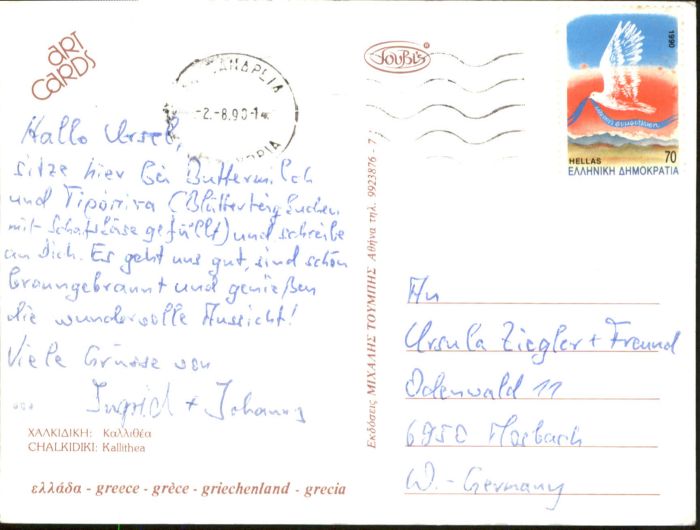 ART
CARDS
ΑΝΔΡΕΙΑ
-2.-8.90-1
ΡΙΑ
TOUBI'S
1990
HELLAS 70
ΕΛΛΗΝΙΚΗ ΔΗΜΟΚΡΑΤΙΑ
Hallo Ursel,
sitze hier bei Buttermilch
und Tiropita (Blätterteigkuchen
mit Schafskäse gefüllt) und schreibe
an Dich. Es geht uns gut, sind schön
braungebrannt und genießen
die wundervolle Aussicht!
Viele Grüsse von
Ingrid + Johannes
ΧΑΛΚΙΔΙΚΗ: Καλλιθέα
CHALKIDIKI: Kallithea
ελλάδα - greece - grèce - griechenland - grecia
Εκδόσεις ΜΙΧΑΛΗΣ ΤΟΥΜΠΗΣ Αθήνα τηλ. 9923876 - 7
An
Ursula Ziegler + Freund
Odenwald 11
6950 Mosbach
W.-Germany